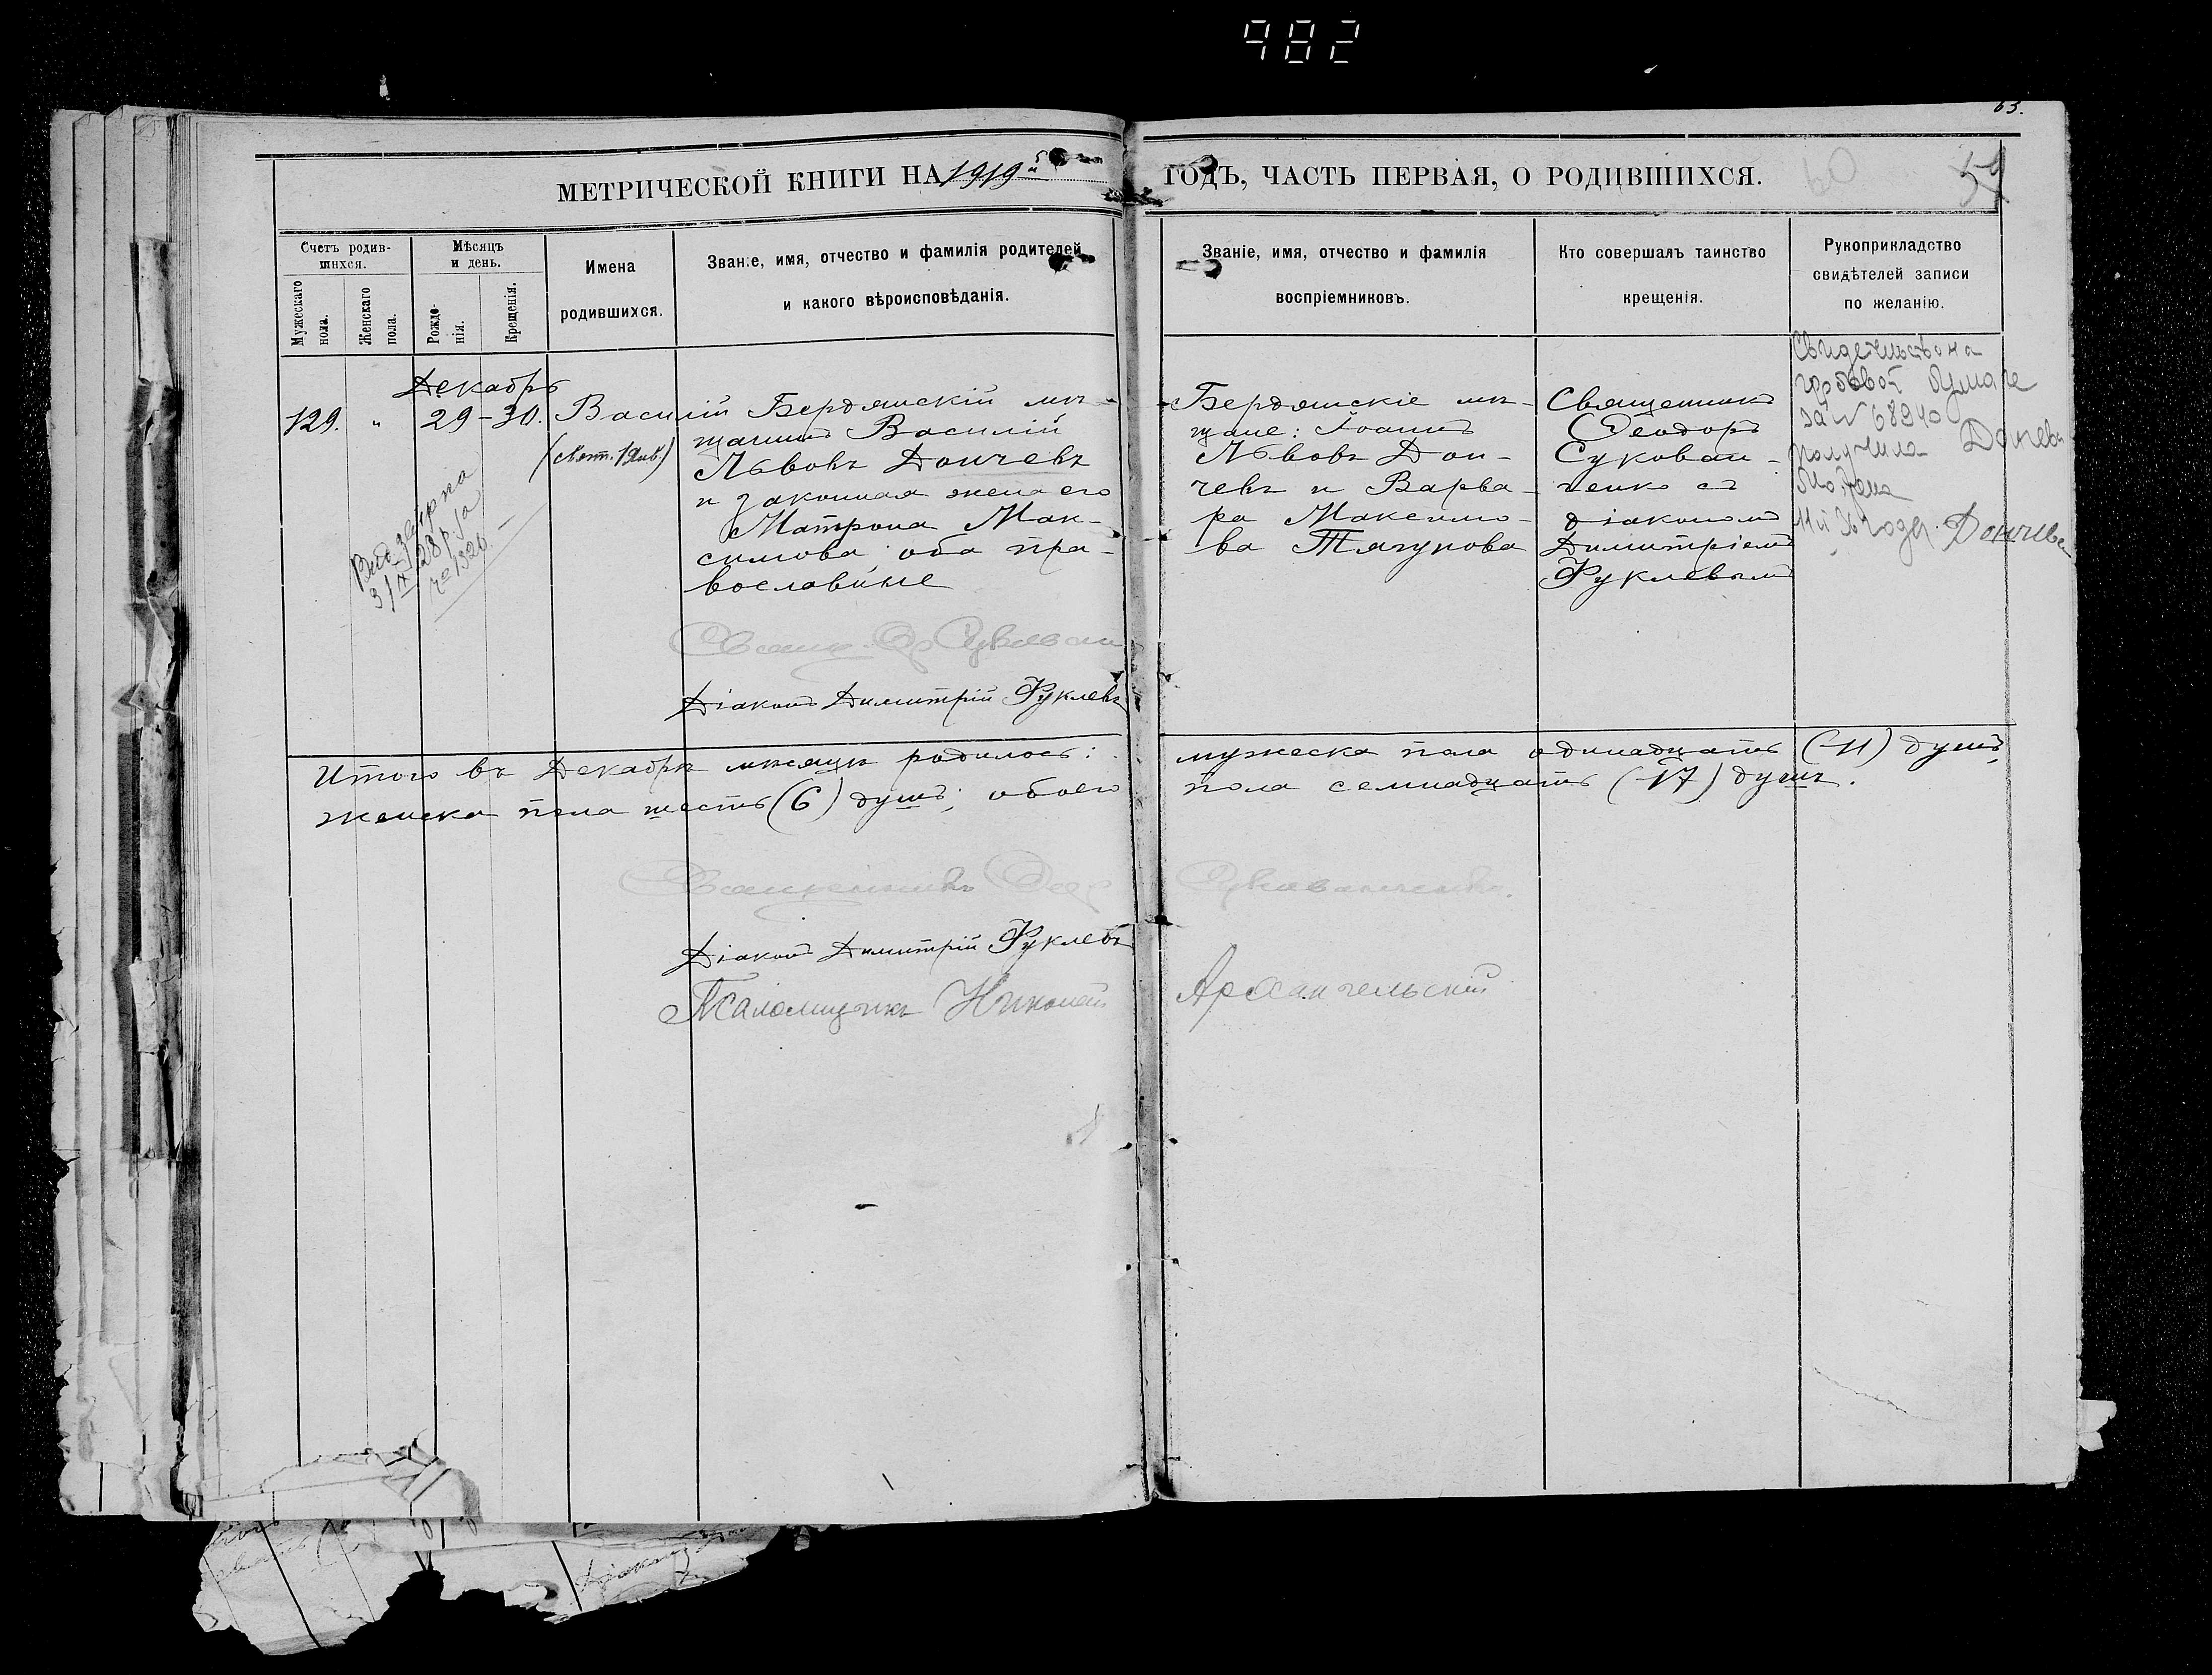 982
63.
МЕТРИЧЕСКОЙ КНИГИ НА 1919й ГОДЪ, ЧАСТЬ ПЕРВАЯ, О РОДИВШИХСЯ.
60
59
Счетъ родив-
шихся.
Мужескаго
пола.
Женскаго
пола.
Мѣсяцъ
и день.
Рожде-
нія.
Крещенія.
Имена
родившихся.
Званіе, имя, отчество и фамилія родителей
и какого вѣроисповѣданія.
Званіе, имя, отчество и фамилія
воспріемниковъ.
Кто совершалъ таинство
крещенія.
Рукоприкладство
свидѣтелей записи
по желанію.
Декабрь
129. " 29-30.
Василій
Бердянскій мѣ-
щанинъ Василій
Львовъ Дончевъ
и законная жена его
Матрона Мак-
симова оба пра-
вославные
Бердянскіе мѣ-
щане: Іоаннъ
Львовъ Дон-
чевъ и Варва-
ра Максимо-
ва Тягунова
Священникъ
Ѳеодоръ
Сукован-
ченко съ
діакономъ
Димитріемъ
Руклевымъ
Свидетельство на
гербовой бумаге
за № 68940
получила
года. Дончева
28 р. за
№ 1326.
Діаконъ Димитрій Руклевъ
Итого въ Декабрѣ мѣсяцѣ родилось: мужеска пола одинадцать (11) душъ,
женска пола шесть (6) душъ; обоего пола семнадцать (17) душъ.
Священникъ Сукованченко.
Діаконъ Димитрій Руклевъ
Псаломщикъ Николай Архангельскій